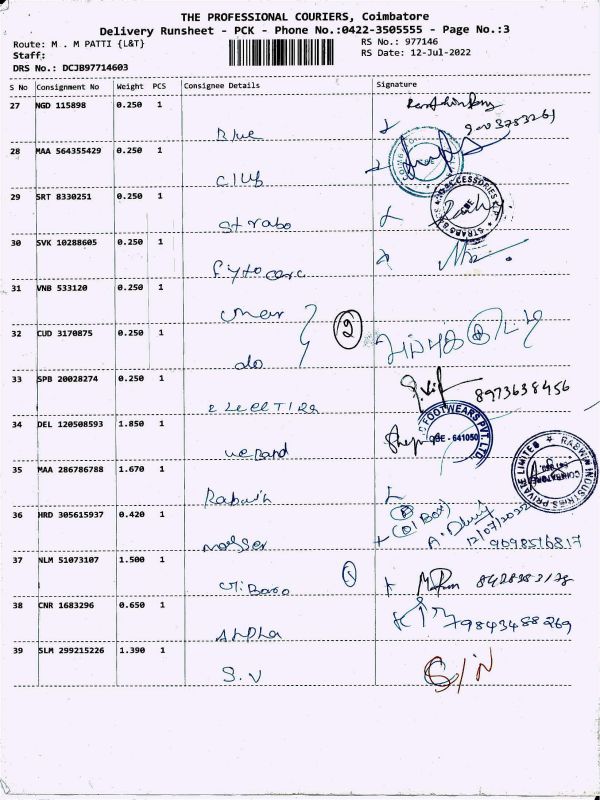 THE PROFESSIONAL COURIERS, Coimbatore
Delivery Runsheet - PCK - Phone No.:0422-3505555 - Page No.:3
Route: M . M PATTI {L&T}
RS No.: 977146
Staff:
RS Date: 12-Jul-2022
DRS No.: DCJB97714603
S No Consignment No Weight PCS Consignee Details Signature
27 NGD 115898 0.250 1
Blue
9003753261
28 MAA 564355429 0.250 1
Club
29 SRT 8330251 0.250 1
Strabo
ACCESSORIES
30 SVK 10288605 0.250 1
Fytocare
31 VNB 533120 0.250 1
2
32 CUD 3170875 0.250 1
do
33 SPB 20028274 0.250 1
8973638456
34 DEL 120508593 1.850 1
FOOTWEARS PVT. LTD.
CBE - 641050
35 MAA 286786788 1.670 1
Rabwin
RABWIN INDUSTRIES PRIVATE LIMITED
COIMBATORE
36 HRD 305615937 0.420 1
(01 Box)
12/07/2022
9098516817
37 NLM 51073107 1.500 1
38 CNR 1683296 0.650 1
Alpha
79843488269
39 SLM 299215226 1.390 1
S.V
G/N